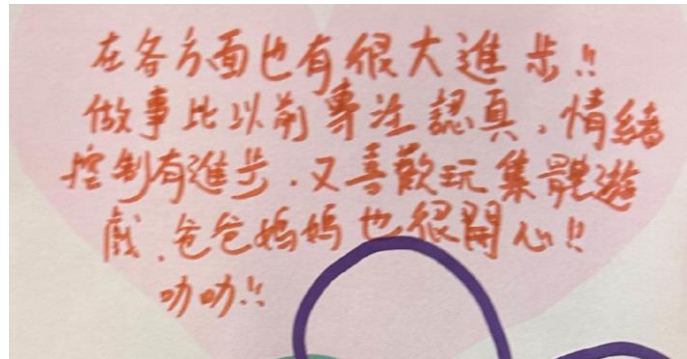 在各方面也有很大進步!!
做事比以前專注認真，情緒
控制有進步，又喜歡玩集體遊
戲，爸爸媽媽也很開心!!
叻叻!!